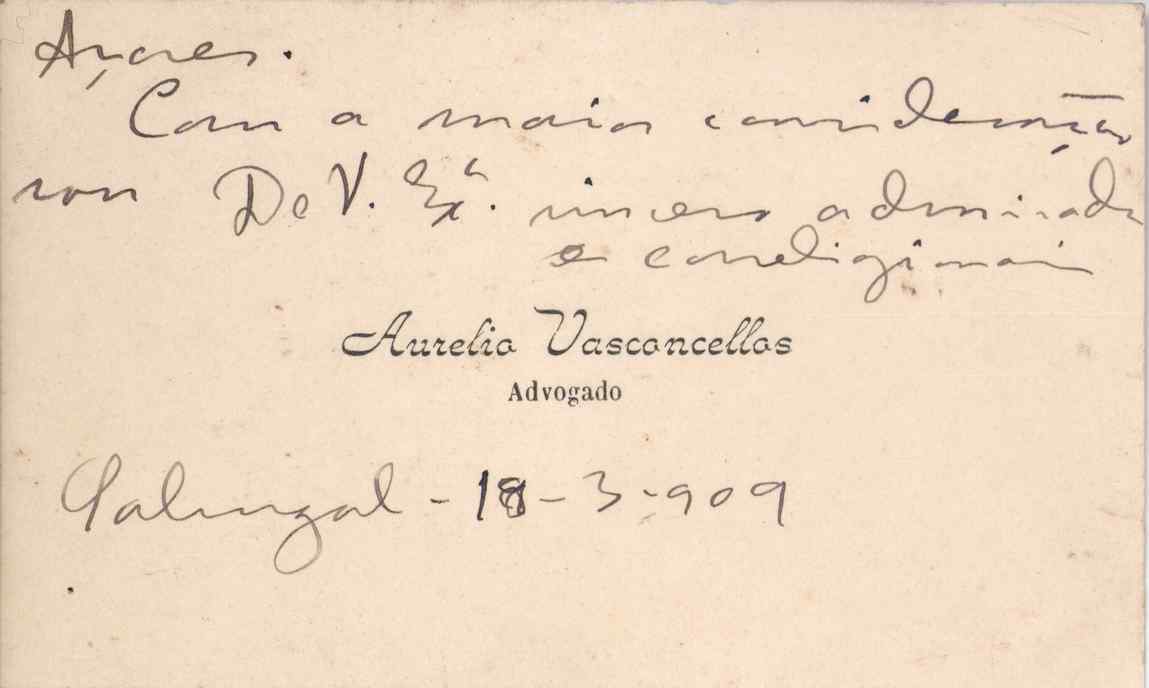 Açores.
Com a maior consideração
sou De V. Exª. sincero admirador
e correligionario
Aurelio Vasconcellos
Advogado
Sabugal - 18-3-909